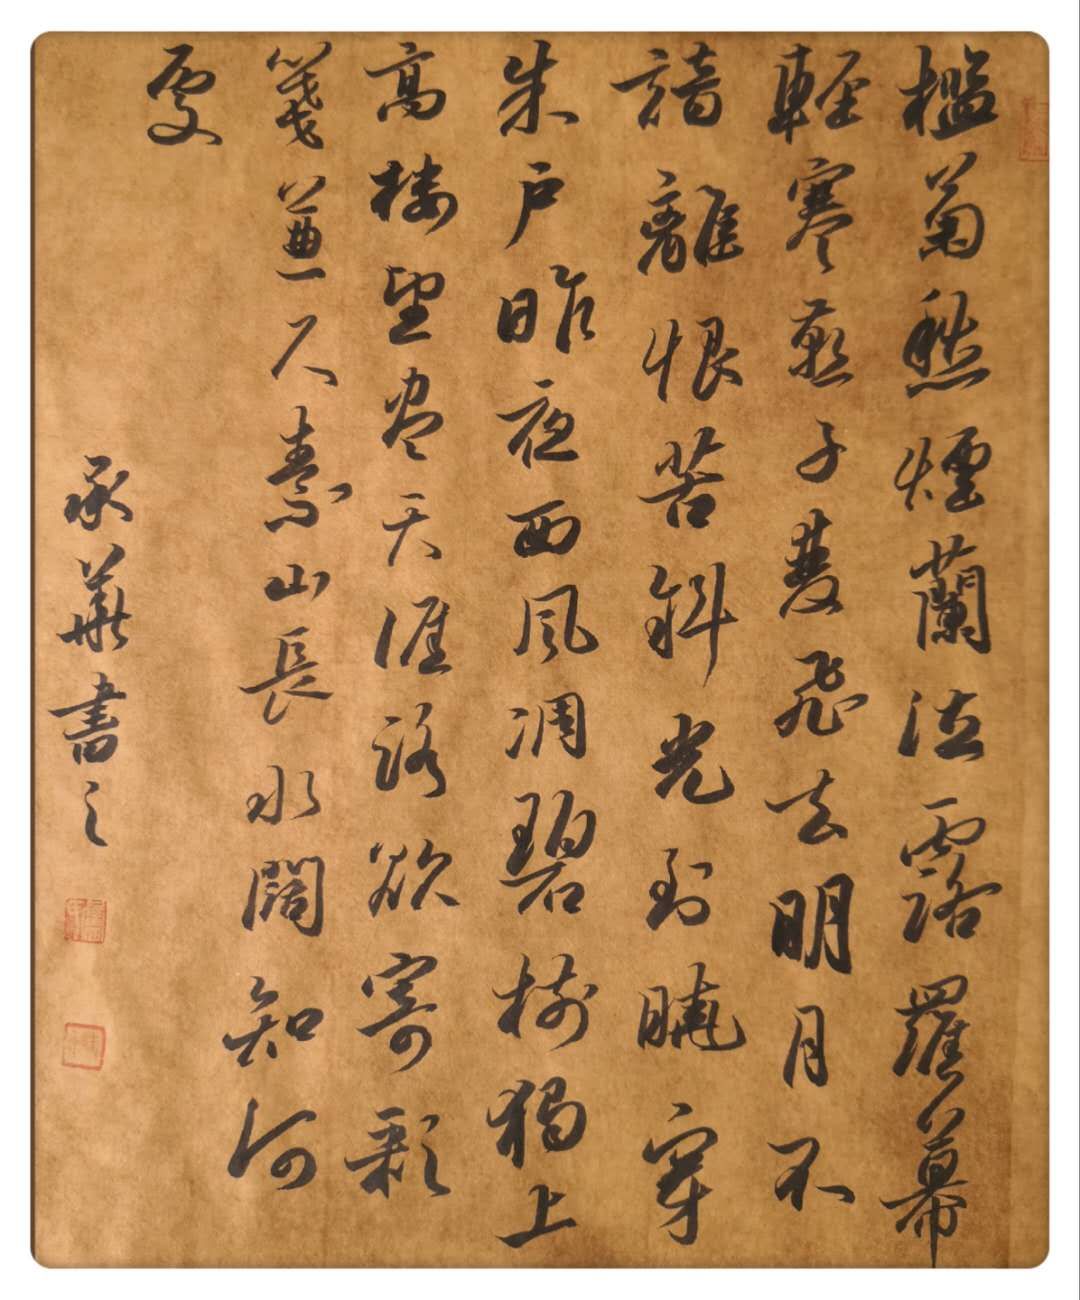 檻菊愁煙蘭泣露羅幕
輕寒燕子雙飛去明月不
諳離恨苦斜光到曉穿
朱戶昨夜西風凋碧樹獨上
高樓望盡天涯路欲寄彩
箋兼尺素山長水闊知何
處
承華書之